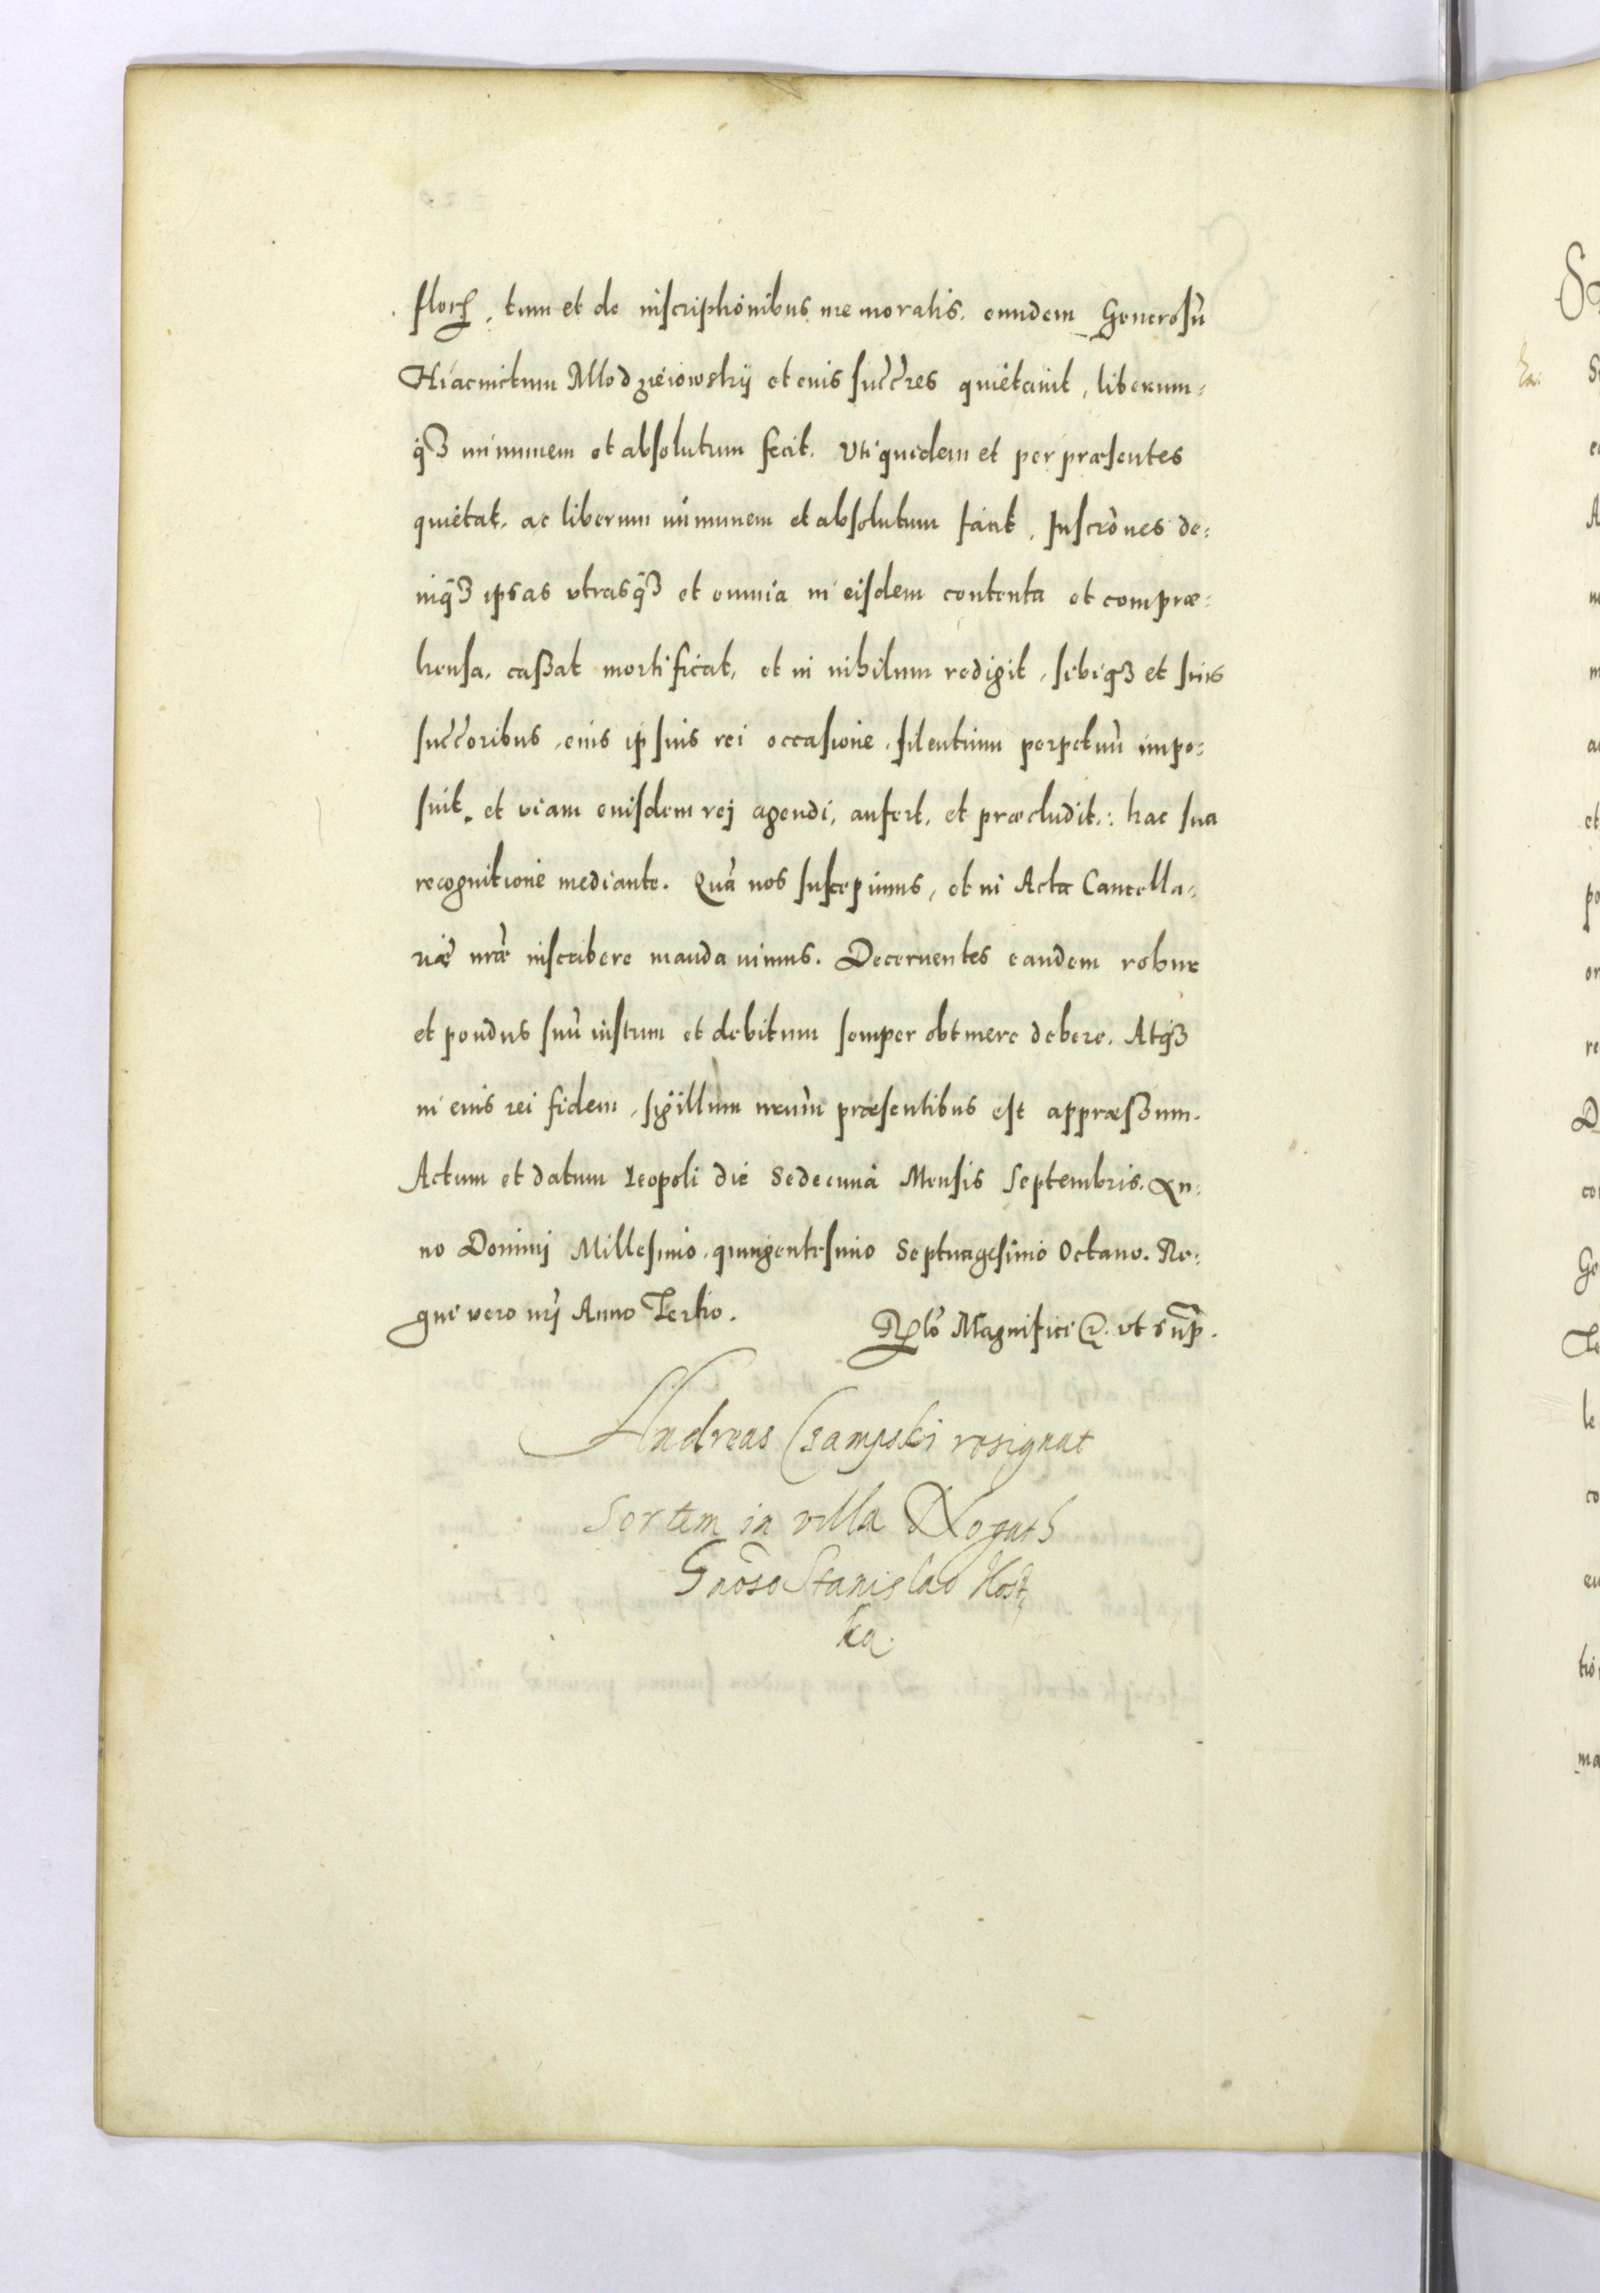 floren, tum et de inscriptionibus memoratis, eundem Generosū
Hiacinctum Mlodzieiowskij et eius succres quietauit, liberum-
q3 immunem et absolutum fecit. Vti quidem et per præsentes
quietat, ac liberum immunem et absolutum facit, Inscrōnes de-
niq3 ipsas vtrasq3 et omnia in eisdem contenta et compræ-
hensa, cassat mortificat, et in nihilum redigit, sibiq3 et suis
succoribus, eius ipsius rei occasione, silentium perpetuū impo-
suit, et viam eiusdem rej agendi, aufert, et præcludit: hac sua
recognitione mediante. Quā nos suscepimus, et in Acta Cancella-
riæ nræ inscribere mandauimus. Decernentes eandem robur
et pondus suū iustum et debitum semper obtinere debere. Atq3
in eius rei fidem, sigillum nrum præsentibus est appræssum.
Actum et datum Leopoli die Sedecima Mensis Septembris. An-
no Dominj Millesimo quingentesimo Septuagesimo Octauo. Re-
gni vero nrj Anno Tertio.
Rlō Magnifici &. vt sup.
Andreas Czampski resignat
sortem in villa Nogath
Gnōso Stanislao Kost
ka.